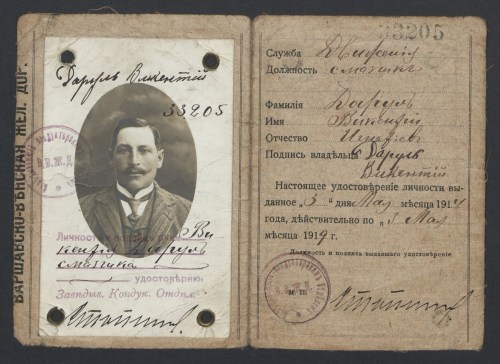 ВАРШАВСКО-ВѢНСКАЯ ЖЕЛ. ДОР.
Даруль Викентій
33205
Личность
Ви
кентія Даруль
смазчика
удостовѣряю:
Завѣдыв. Кондук. Отдѣл.
33205
Служба Движенія
Должность смазчикъ
Фамилія Даруль
Имя Викентій
Отчество
Подпись владѣльца Даруль
Викентій
Настоящее удостовѣреніе личности вы-
данное „3" дня Мая мѣсяца 1914
года, дѣйствительно по „3 Мая
мѣсяца 1919 г.
Должность и подпись выдавшаго удостовѣреніе
М. П.